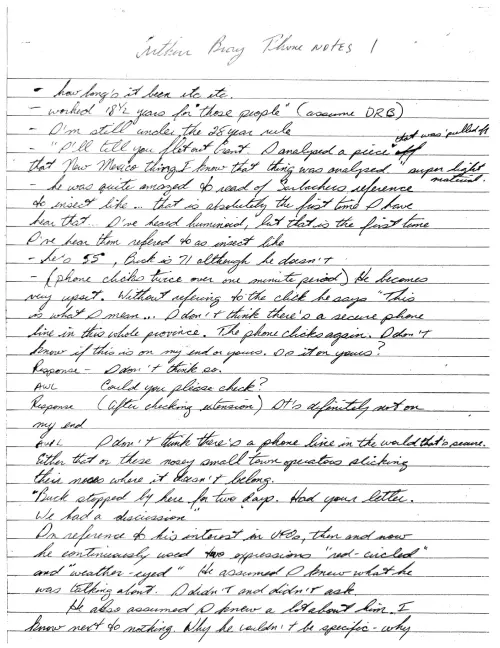 Arthur Bray Phone NOTES 1
- how long's it been etc etc.
- worked 18½ years for "those people" (assume DRB)
- I'm still under the 28 year rule
- "I'll tell you flat out Grant. I analysed a piece off that was pulled off
that New Mexico thing. I know that thing was analysed" super light material.
- he was quite amazed to read of Sarbacher's reference
to insect like ... that is absolutely the first time I have
hear that... I've heard huminoid, but that is the first time
I've hear them refered to as insect like
- he's 55, Buck is 71 although he doesn't
- (phone clicks twice over one minute period) He becomes
very upset. Without refering to the click he says "This
is what I mean... I don't think there's a secure phone
line in this whole province. The phone clicks again. I don't
know if this is on my end or yours. Is it on yours?
Response - I don't think so.
AWL Could you please check?
Response (after checking extension) It's definitely not on
my end
AWL I don't think there's a phone line in the world that's secure.
Either that or these nosey small town operators sticking
their noses where it doesn't belong.
"Buck stopped by here for two days. Had your letter.
We had a discussion"
In reference to his interest in UFOs, then and now
he continuously used two expressions "red-circled"
and "weather-eyed" He assumed I knew what he
was talking about. I didn't and didn't ask
He also assumed I knew a lot about him. I
know next to nothing. Why he couldn't be specific - why